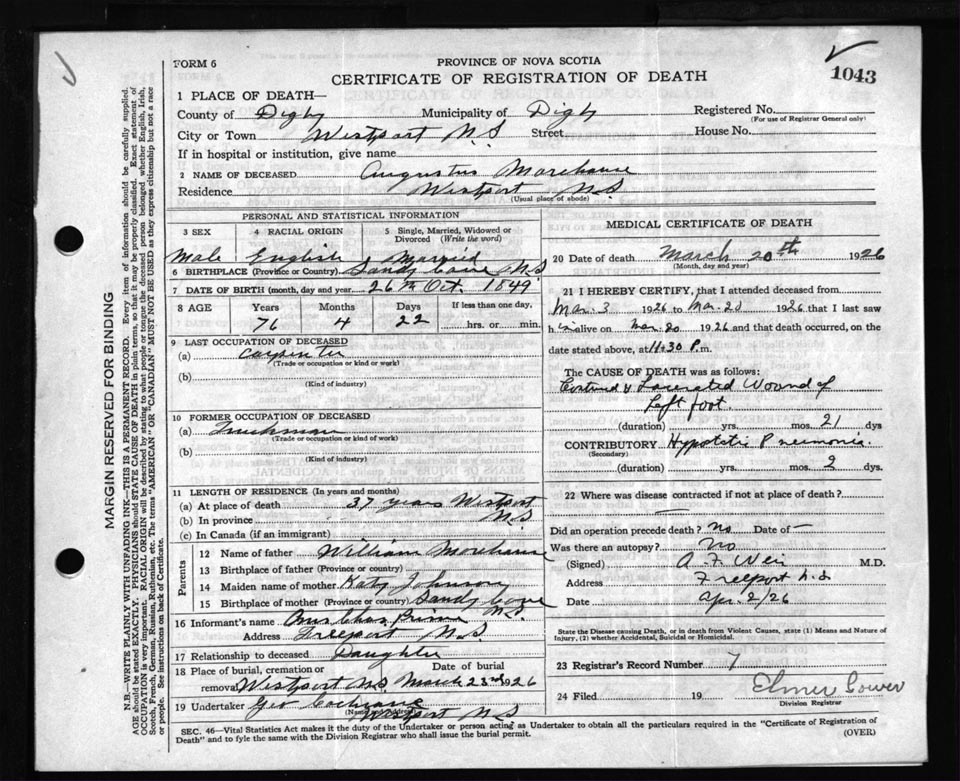 FORM 6
PROVINCE OF NOVA SCOTIA
CERTIFICATE OF REGISTRATION OF DEATH
1043
1 PLACE OF DEATH—
County of Digby Municipality of Digby Registered No.
(For use of Registrar General only)
City or Town Westport N.S. Street House No.
If in hospital or institution, give name
2 NAME OF DECEASED Augustus Morehouse
Residence Westport N.S.
(Usual place of abode)
PERSONAL AND STATISTICAL INFORMATION
3 SEX 4 RACIAL ORIGIN 5 Single, Married, Widowed or Divorced (Write the word)
Male English Married
6 BIRTHPLACE (Province or Country) Sandy Cove N.S
7 DATE OF BIRTH (month, day and year 26th Oct. 1849
8 AGE Years Months Days If less than one day,
76 4 22 hrs. or min.
9 LAST OCCUPATION OF DECEASED
(a) Carpenter
(Trade or occupation or kind or work)
(b)
(Kind of industry)
10 FORMER OCCUPATION OF DECEASED
(a)
(Trade or occupation or kind of work)
(b)
(Kind of industry)
11 LENGTH OF RESIDENCE (In years and months)
(a) At place of death 37 years Westport
(b) In province N.S
(c) In Canada (if an immigrant)
Parents
12 Name of father William Morehouse
13 Birthplace of father (Province or country)
14 Maiden name of mother Katy Johnson
15 Birthplace of mother (Province or country) Sandy Cove N.S.
16 Informant's name Mrs Chas
Address Freeport N.S.
17 Relationship to deceased Daughter
18 Place of burial, cremation or removal Westport N.S. Date of burial March 23rd 1926
19 Undertaker Geo Cochrane
(Name and address)
Westport N.S
MEDICAL CERTIFICATE OF DEATH
20 Date of death March 20th 1926
(Month, day and year)
21 I HEREBY CERTIFY, that I attended deceased from
Mar. 3 1926 to Mar. 20 1926 that I last saw
him alive on Mar. 20 1926 and that death occurred, on the
date stated above, at 11.30 P.m.
The CAUSE OF DEATH was as follows:
Lacerated Wound of
left foot.
(duration) yrs. mos. 21 dys
CONTRIBUTORY Pneumonia.
(Secondary)
(duration) yrs. mos. 2 dys.
22 Where was disease contracted if not at place of death?
—
Did an operation precede death? no Date of —
Was there an autopsy? No
(Signed) A. F. Weir M.D.
Address Freeport N.S
Date Apr. 2/26
State the Disease causing Death, or in death from Violent Causes, state (1) Means and Nature of
Injury, (2) whether Accidental, Suicidal or Homicidal.
23 Registrar's Record Number 7
24 Filed 19 Elmer
Division Registrar
SEC. 46—Vital Statistics Act makes it the duty of the Undertaker or person acting as Undertaker to obtain all the particulars required in the "Certificate of Registration of
Death" and to fyle the same with the Division Registrar who shall issue the burial permit.
(OVER)
MARGIN RESERVED FOR BINDING
N.B.—WRITE PLAINLY WITH UNFADING INK—THIS IS A PERMANENT RECORD. Every item of information should be carefully supplied.
AGE should be stated EXACTLY. PHYSICIANS should STATE CAUSE OF DEATH in plain terms, so that it may be properly classified. Exact statement of
OCCUPATION is very important. RACIAL ORIGIN will be described by stating to what people or tongue the deceased person belonged whether English, Irish,
Scotch, French, German, Russian, Ruthenian, etc. The terms "AMERICAN" or "CANADIAN" MUST NOT BE USED as they express citizenship but not a race
or people. See instructions on back of Certificate.